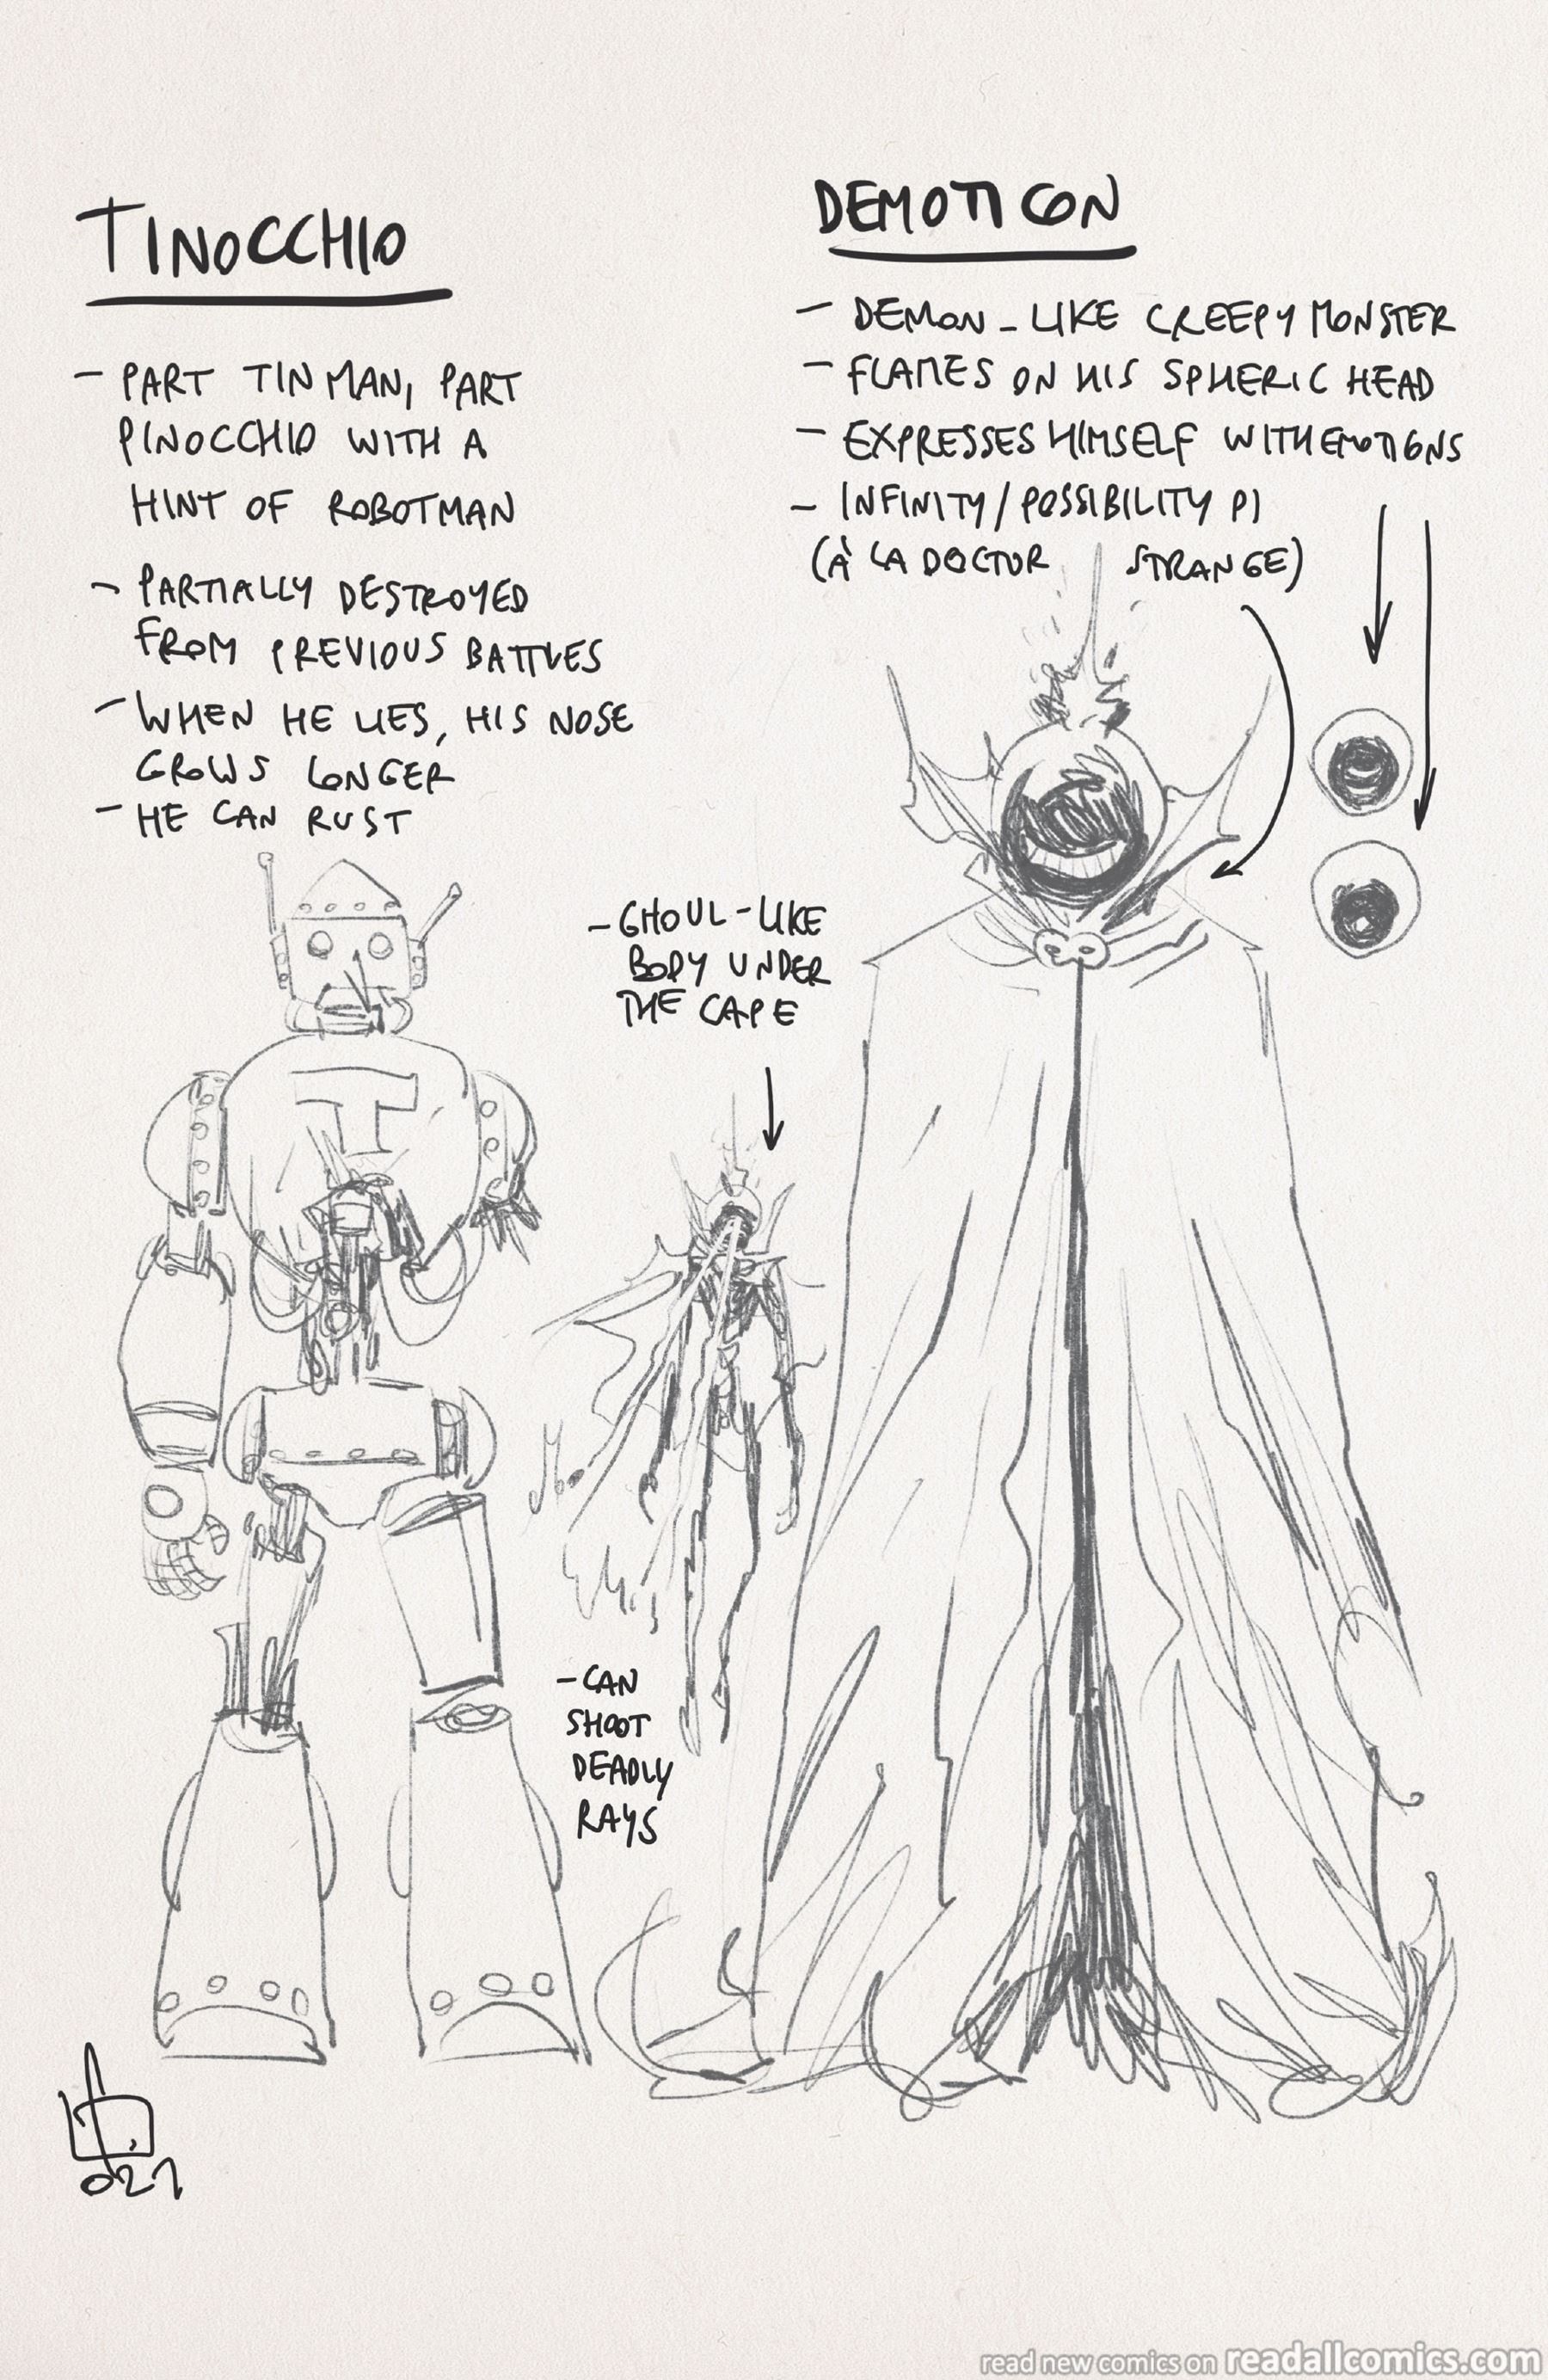 TINOCCHIO
- PART TIN MAN, PART
PINOCCHIO WITH A
HINT OF ROBOTMAN
- PARTIALLY DESTROYED
FROM PREVIOUS BATTLES
- WHEN HE LIES, HIS NOSE
GROWS LONGER
- HE CAN RUST
T
DEMOTICON
- DEMON-LIKE CREEPY MONSTER
- FLAMES ON HIS SPHERIC HEAD
- EXPRESSES HIMSELF WITH EMOTIONS
- INFINITY/POSSIBILITY PI
(À LA DOCTOR STRANGE)
- GHOUL-LIKE
BODY UNDER
THE CAPE
- CAN
SHOOT
DEADLY
RAYS
021
read new comics on readallcomics.com